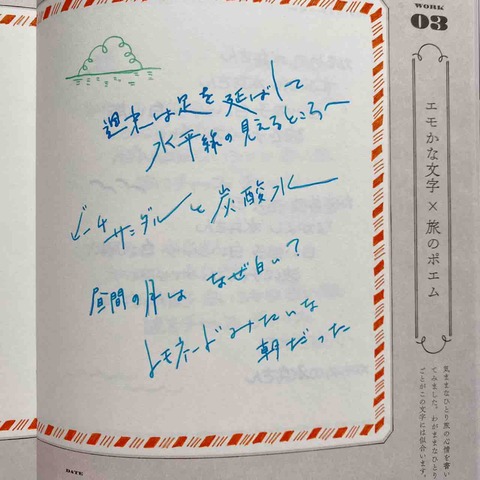 WORK
03
エモかな文字×旅のポエム
週末は足を延ばして
水平線の見えるところへ
ビーチサンダルと炭酸水
昼間の月は なぜ白い?
レモネードみたいな
朝だった
気ままなひとり旅の心情を書い
てみました。わがままなひとり
ごとがこの文字には似合います。
DATE